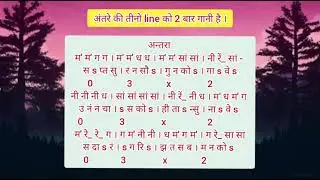 अंतरे की तीनो line को 2 बार गानी है ।
अन्तरा
म' म' ग ग । म' म' ध ध । म' म' सां सां । नी रें_ सां -
स s प्त सु । र न सो s । गु न को s । गा s वे s
0 3 x 2
नी नी नी ध । सां सां सां सां । नी रें_ नी ध । म' ध म' ग
उ न न चा । s स को s । ही ता s न्सु । ना s वे s
0 3 x 2
म' रे_ रे_ ग । ग म' नी नी । ध म' ग म' । ग रे_ सा सा
स दा s रं । s ग रि s । झ त स ब । म न को s
0 3 x 2